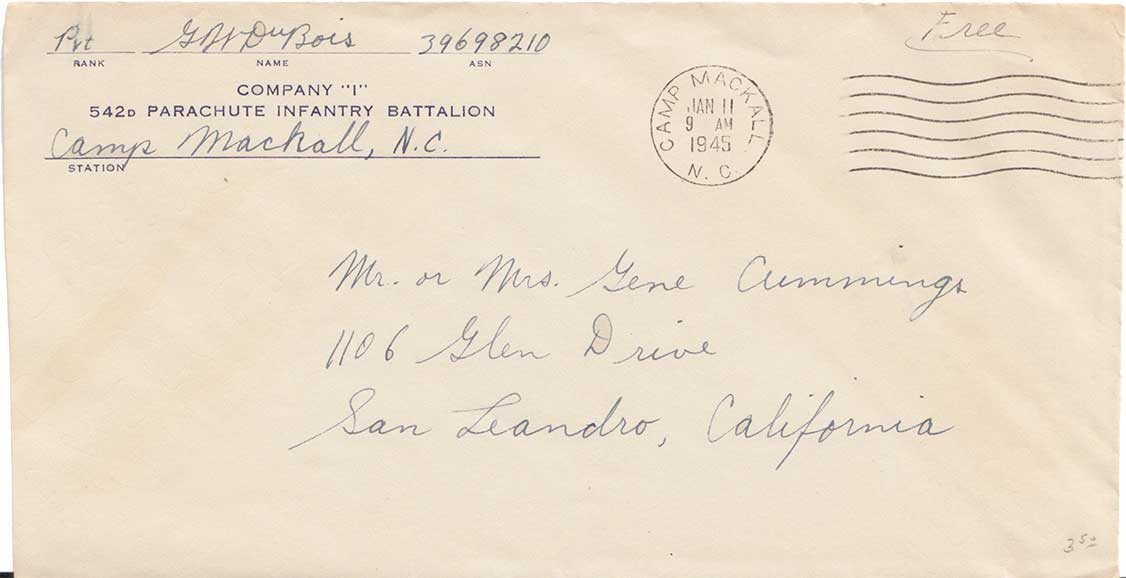 Pvt G W DuBois 39698210
RANK NAME ASN
COMPANY "I"
542D PARACHUTE INFANTRY BATTALION
Camp Mackall, N.C.
STATION
Free
CAMP MACKALL
JAN 11
9 AM
1945
N. C.
Mr. or Mrs. Gene Cummings
1106 Glen Drive
San Leandro, California
3 50